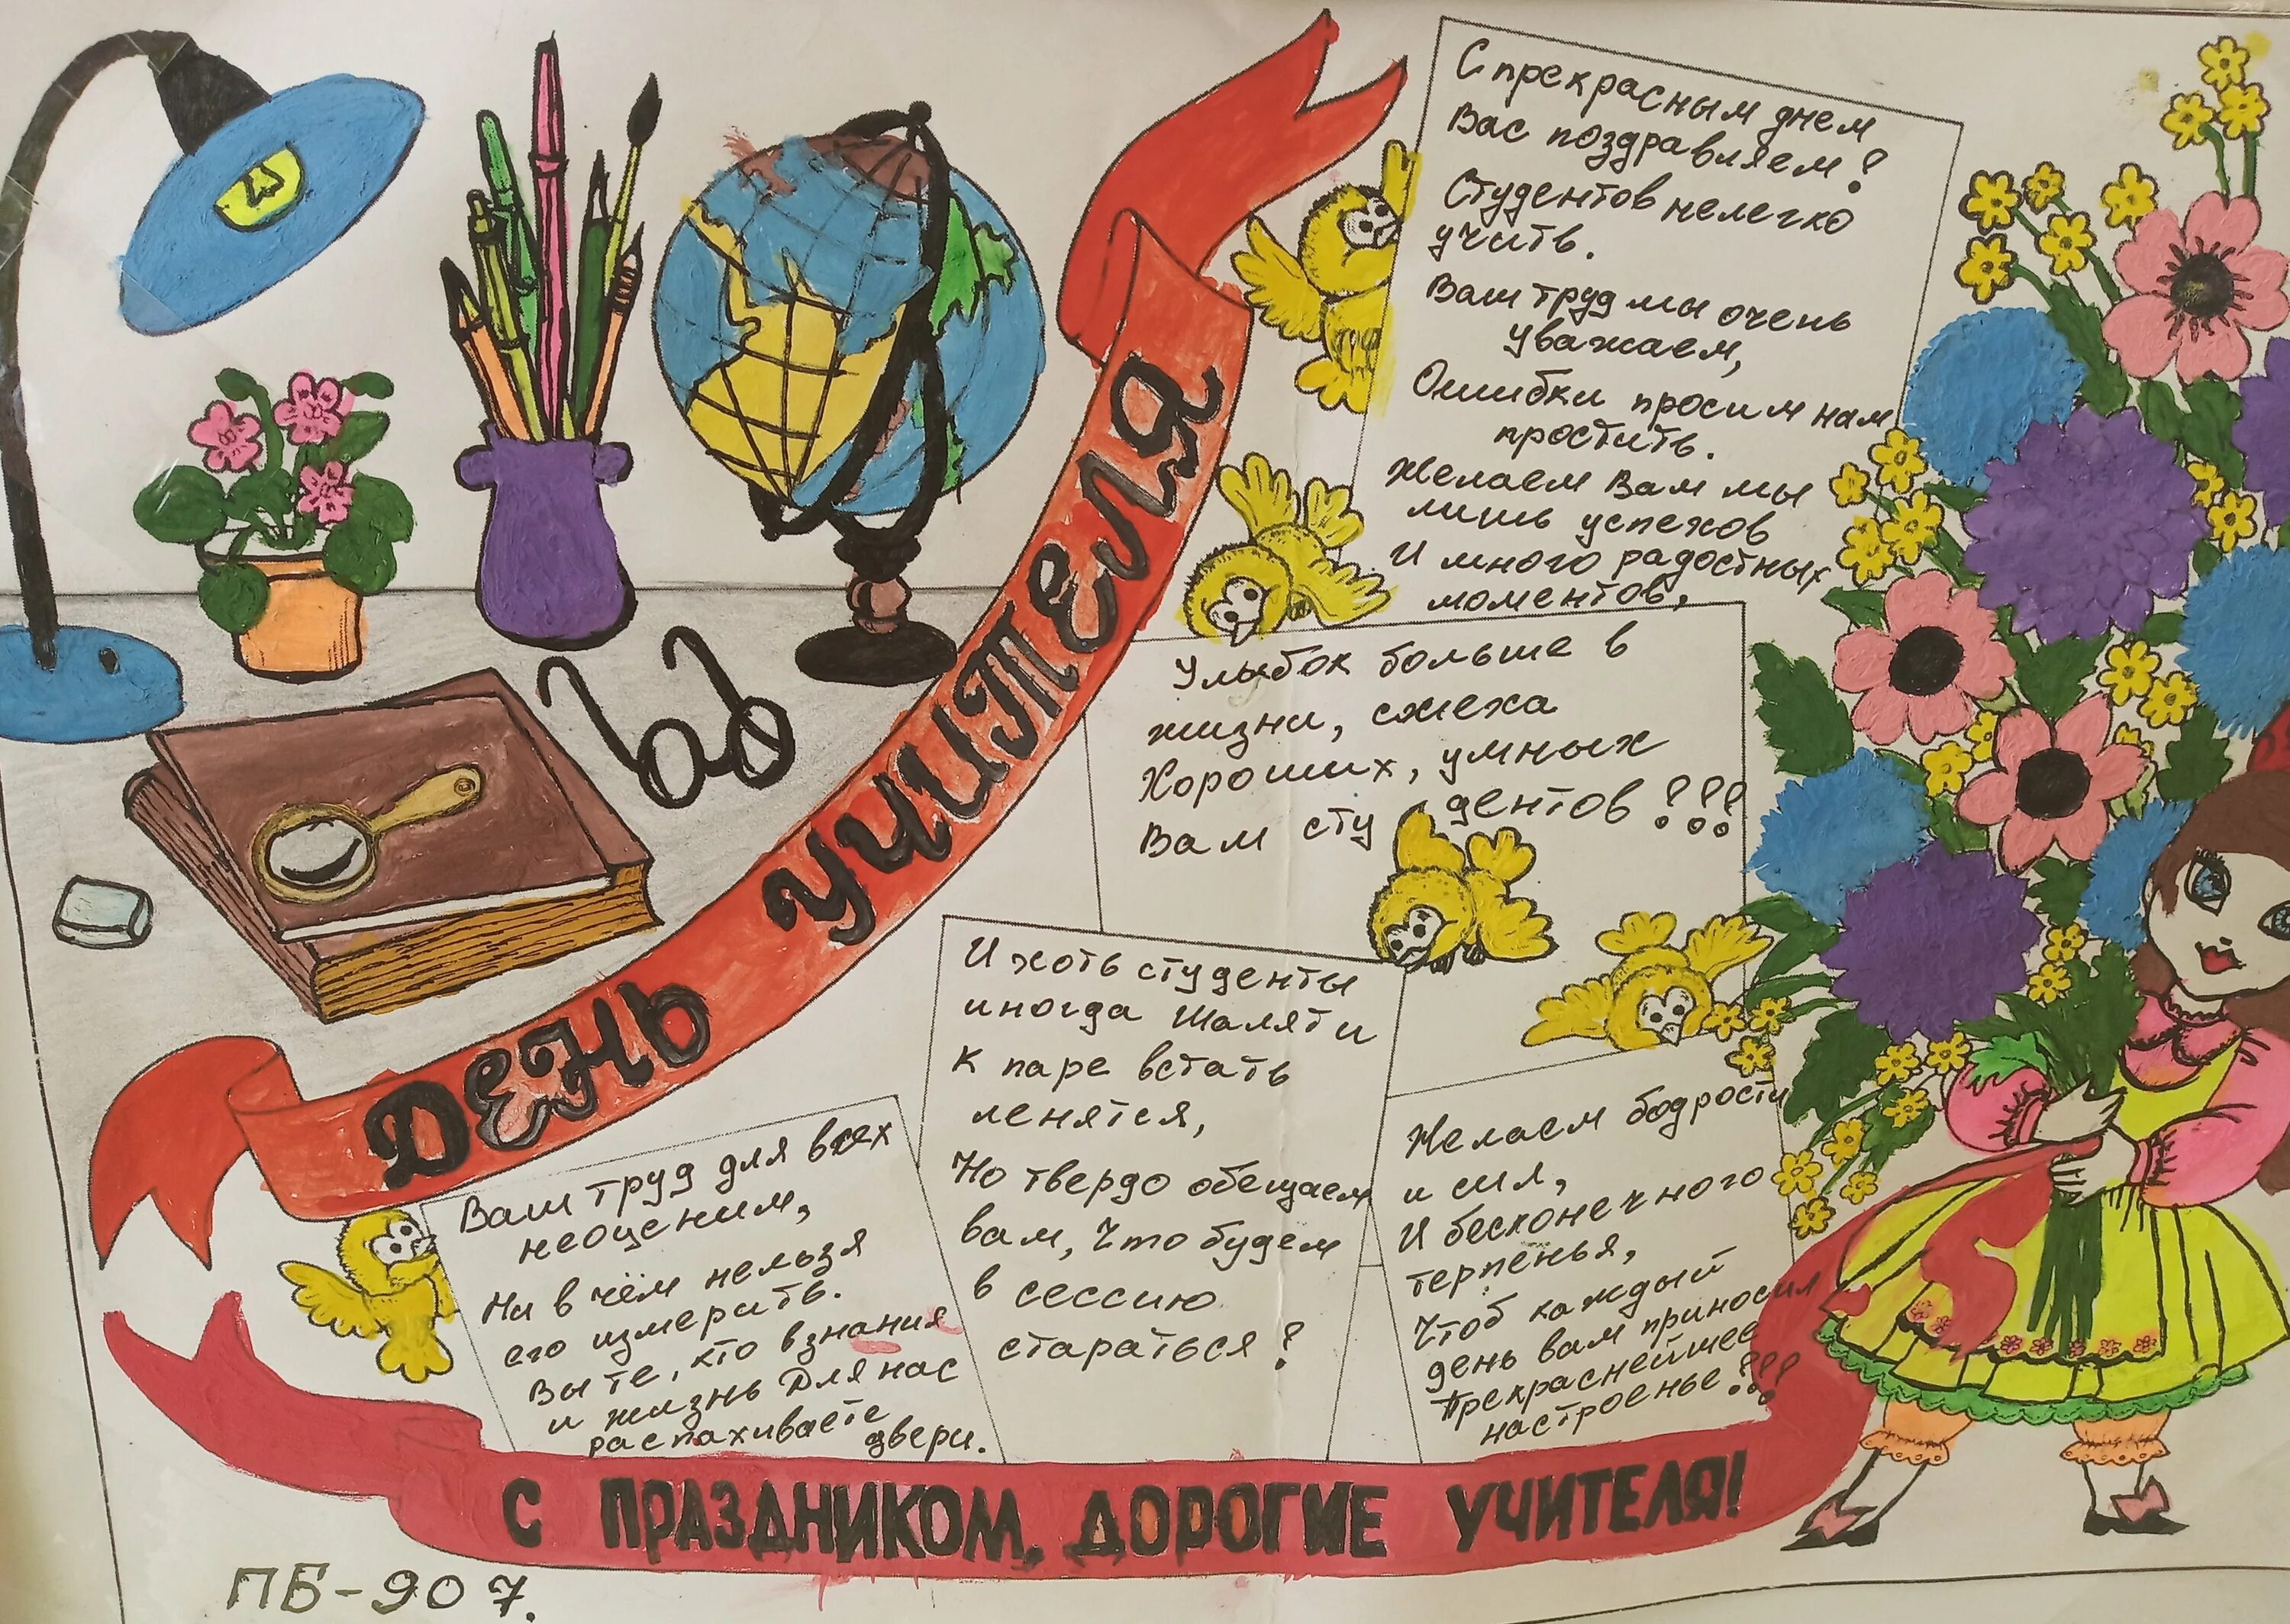 ДЕНЬ УЧИТЕЛЯ
С прекрасным днем
Вас поздравляем!
Студентов нелегко
учить.
Ваш труд мы очень
уважаем,
Ошибки просим нам
простить.
Желаем Вам мы
лишь успехов
И много радостных
моментов,
Улыбок больше в
жизни, смеха
Хороших, умных
Вам студентов!!!
И хоть студенты
иногда шалят и
к паре встать
ленятся,
Но твердо обещаем
вам, Что будем
в сессию
стараться!
Ваш труд для всех
неоценим,
Ни в чём нельзя
его измерить.
Вы те, кто в знания
и жизнь Для нас
распахиваете
двери.
Желаем бодрости
и сил,
И бесконечного
терпенья,
Чтоб каждый
день вам приносил
Прекраснейшее
настроенье!!!
С ПРАЗДНИКОМ, ДОРОГИЕ УЧИТЕЛЯ!
ПБ-907.